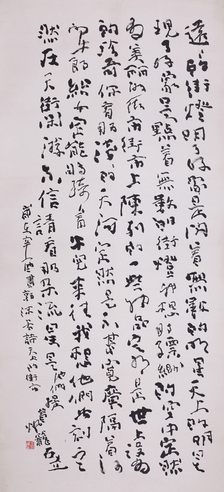 遠遠的街燈明了好像是閃着無數的明星天上的明星
現了好像是點着無數的街燈我想那縹緲的空中定然
有美麗的街市街市上陳列的一些物品定然是世上沒有
的珍奇你看那淺淺的天河定然是不甚寬廣隔着河
牛郎織女定能夠騎着牛兒來往我想他們此刻定
然在天街閑游不信請看那朵流星是他們提
着燈籠在走
書郭沫若詩天上的街市